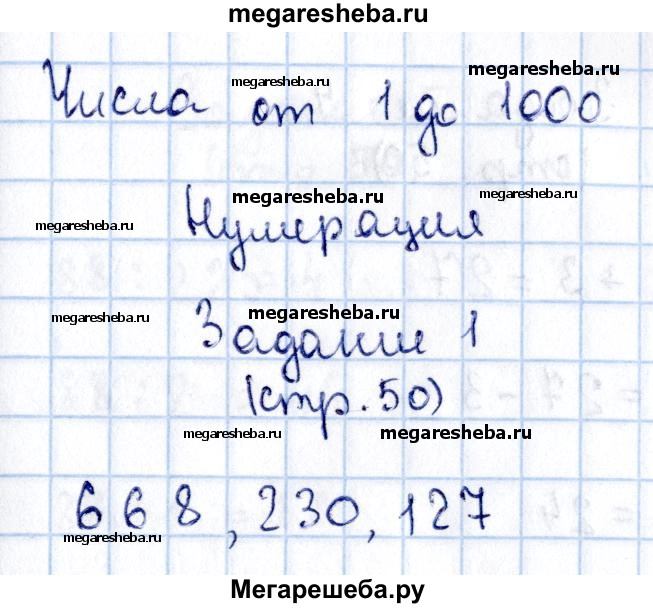 megaresheba.ru
megaresheba.ru
megaresheba.ru
Числа от 1 до 1000
megaresheba.ru
megaresheba.ru
megaresheba.ru
Нумерация
megaresheba.ru
megaresheba.ru
Задание 1
(стр. 50)
megaresheba.ru
megaresheba.ru
668, 230, 127
megaresheba.ru
Мегарешеба.ру